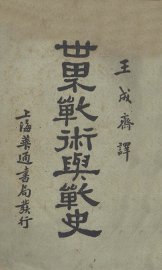 王成齋譯
世界戰術與戰史
上海華通書局發行